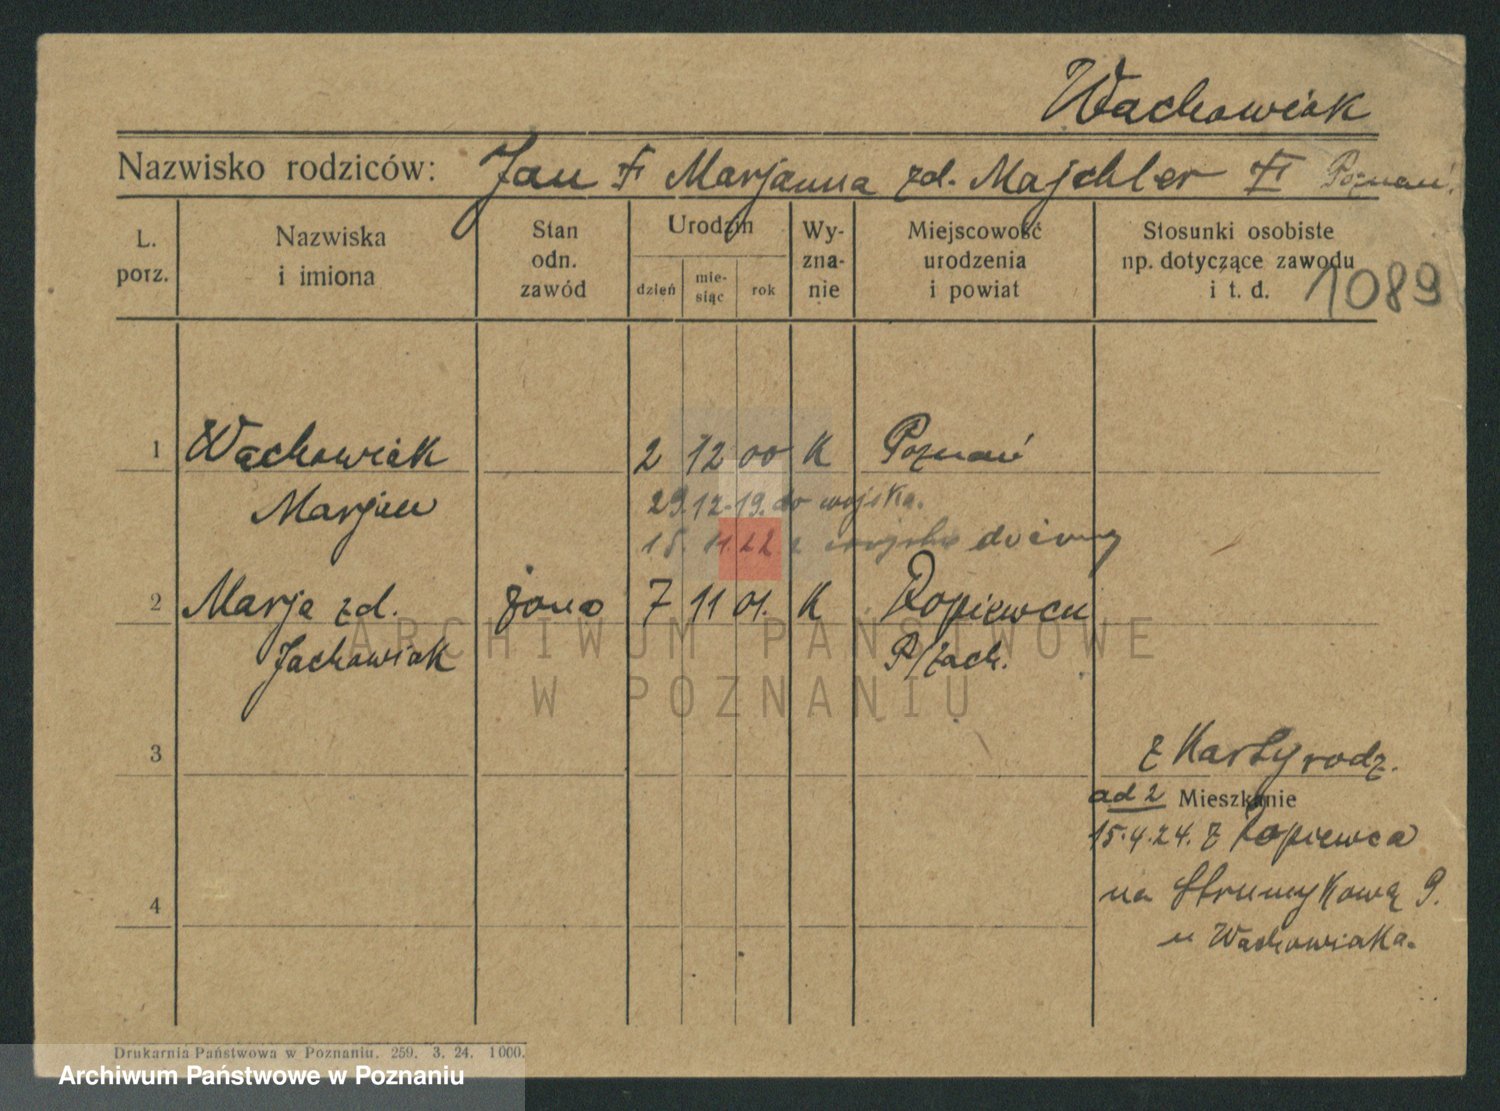 Wachowiak
Nazwisko rodziców: Jan Marjanna zd. Majchler Poznań.
L. porz.
Nazwiska i imiona
Stan odn. zawód
Urodzin
dzień
mie-siąc
rok
Wy-zna-nie
Miejscowość urodzenia i powiat
Stosunki osobiste np. dotyczące zawodu i t. d.
1089
1 Wachowiak 2 12 00 K Poznań
Marjan 29.12.19. do wojska.
15. 11. 22 z wojska
2 Marja zd. żona 7 11 01. K Dopiewcu
Jachowiak P/zach.
3
z Karty rodz.
ad 2 Mieszkanie
15.4.24. z Dopiewca
4
na Strumykową 9.
u Wachowiaka.
Drukarnia Państwowa w Poznaniu. 259. 3. 24. 1000.
ARCHIWUM PAŃSTWOWE
W POZNANIU
Archiwum Państwowe w Poznaniu